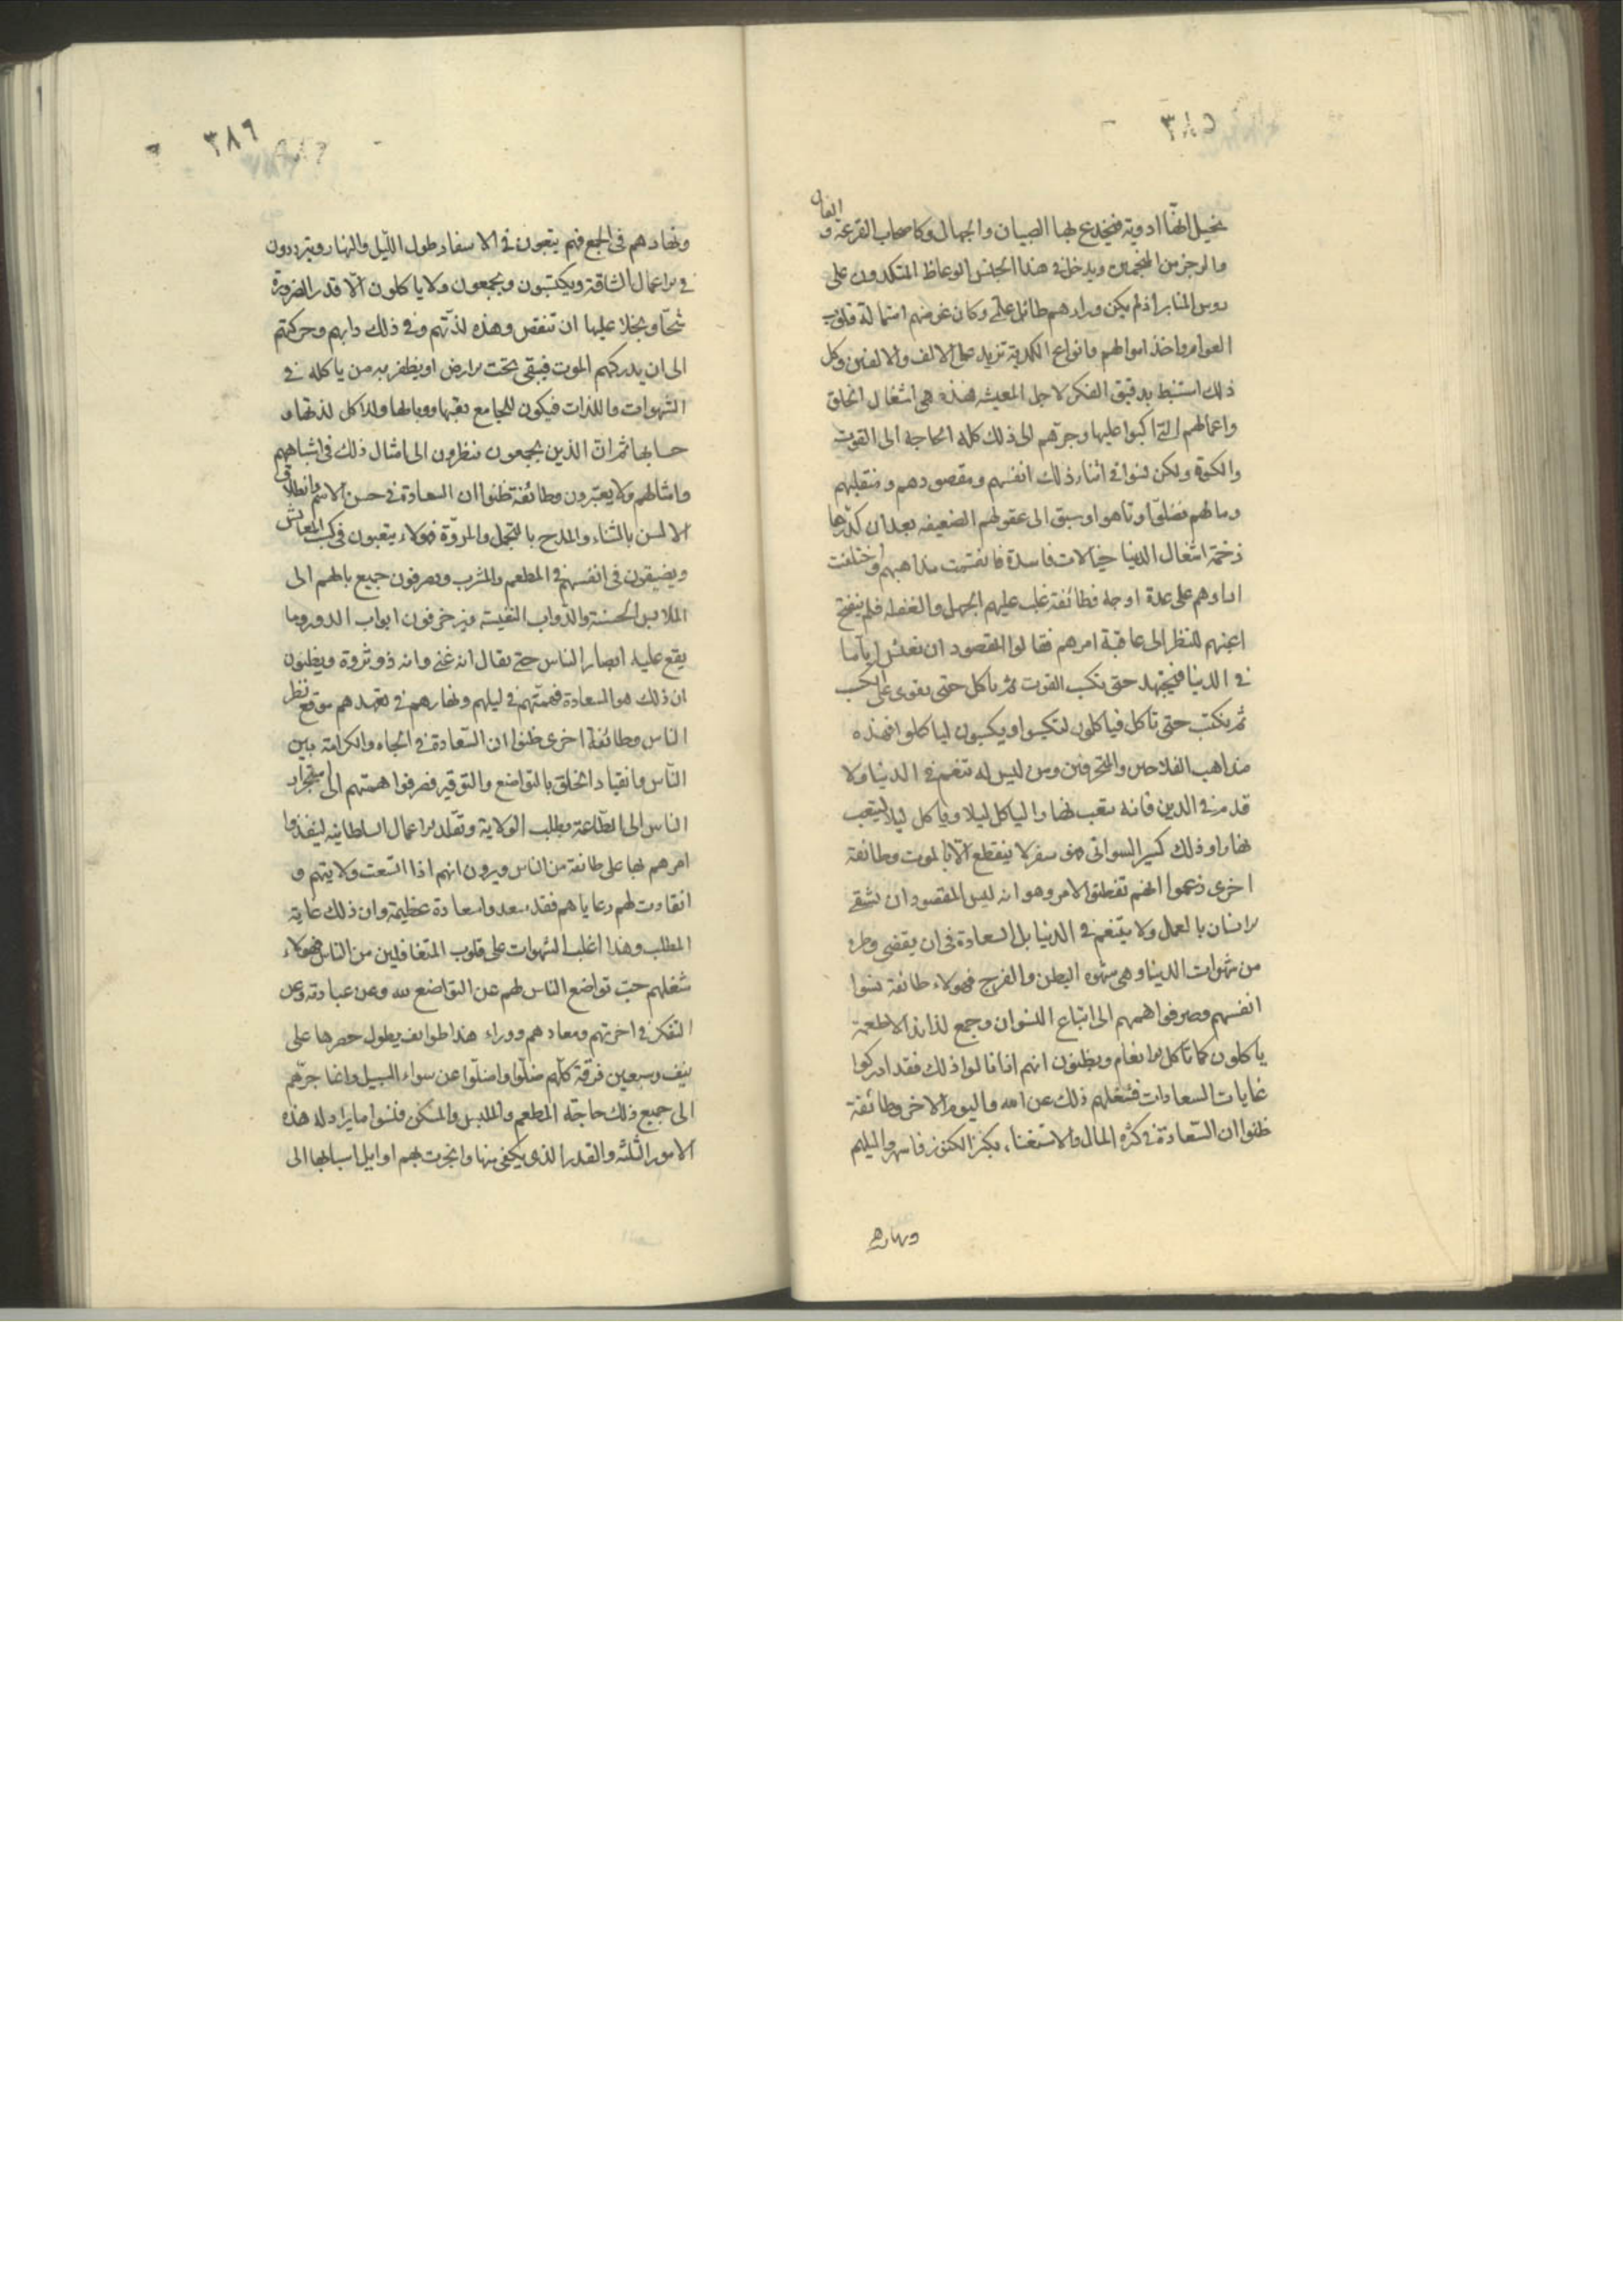 ٣٨٥
يخيل انها ادوية فيخدع بها الصبيان والجهال وكاصحاب القرعة و الفال
والزجر من المنجمين ويدخل في هذا الجنس الوعاظ المتكدون على
روس المنابر اذ لم يكن وراءهم طائل علمي وكان غرضهم استمالة قلوب
العوام واخذ اموالهم وانواع الكدية تزيد على الالف والالفين وكل
ذلك استنبط بدقيق الفكر لاجل المعيشة فهذه هي اشغال الخلق
واعمالهم التي اكبوا عليها وجرهم الى ذلك كله الحاجة الى القوت
والكسوة ولكن نسوا في اثناء ذلك انفسهم ومقصودهم ومنقلبهم
ومالهم فضلوا وتاهوا وسبق الى عقولهم الضعيفه بعد ان كدرها
زخمة اشغال الدنيا خيالات فاسدة فانقسمت مذاهبهم واختلفت
اراوهم على عدة اوجه فطائفة غلب عليهم الجهل والغفله فلم ينفتح
اعينهم للنظر الى عاقبة امرهم فقالوا المقصود ان نعيش اياما
في الدنيا فنجتهد حتى نكسب القوت ثم ناكل حتى نقوى على الكسب
ثم نكتسب حتى ناكل فياكلون لتكسبوا ويكسبون لياكلوا فهذه
مذاهب الفلاحين والمحترفين ومن ليس له تنعم في الدنيا ولا
قدم في الدين فانه يتعب نهارا لياكل ليلا وياكل ليلا ليتعب
نهارا وذلك كسير السواني فهو سفر لا ينقطع الا بالموت وطائفة
اخرى زعموا انهم تفطنوا الامر وهو انه ليس المقصود ان يشقى
الانسان بالعمل ولا يتنعم في الدنيا بل السعادة في ان يقضى وطره
من شهوات الدنيا وهي شهوه البطن والفرج فهولاء طائفة نسوا
انفسهم وصرفوا هممهم الى اتباع النسوان وجمع لذايذ الاطعمة
ياكلون كما تاكل الانعام ويظنون انهم اذا نالوا ذلك فقد ادركوا
غايات السعادات فشغلهم ذلك عن الله واليوم الاخر وطائفة
ظنوا ان السعادة في كثره المال والاستغناء بكنز الكنوز فاسهروا ليلهم
ونهارهم
٣٨٦
ونهارهم في الجمع فهم يتعبون في الاسفار طول الليل والنهار ويترددون
في الاعمال الشاقة ويكتسبون ويجمعون ولا ياكلون الا قدر الضرورة
شحا وبخلا عليها ان تنقص وهذه لذتهم وفي ذلك دابهم وحركتهم
الى ان يدركهم الموت فيبقى تحت الارض او يظفر به من ياكله في
الشهوات واللذات فيكون للجامع تعبها ووبالها وللاكل لذتها و
حسابها ثم ان الذين يجمعون ينظرون الى امثال ذلك في اشباههم
وامثالهم ولا يعتبرون وطائفة ظنوا ان السعادة في حسن الاسم وانطلاق
الالسن بالثناء والمدح بالتجمل والمروة فهولاء يتعبون في كسب المعايش
ويضيقون في انفسهم في المطعم والمشرب ويصرفون جميع بالهم الى
الملابس الحسنة والدواب النفيسة ويزخرفون ابواب الدور وما
يقع عليه ابصار الناس حتى يقال انه غني وانه ذو ثروة ويظنون
ان ذلك هو السعادة فهمتهم في ليلهم ونهارهم في تعهدهم موقع نظر
الناس وطائفة اخرى ظنوا ان السعادة في الجاه والكرامة بين
الناس وانقياد الخلق بالتواضع والتوقير فصرفوا همتهم الى استجرار
الناس الى الطاعة بطلب الولاية وتقلد الاعمال السلطانيه لينفذوا
امرهم بها على طائفة من الناس ويرون انهم اذا اتسعت ولايتهم و
انقادت لهم رعاياهم فقد سعدوا سعادة عظيمة وان ذلك غاية
المطلب وهذا اغلب الشهوات على قلوب المتغافلين من الناس فهولاء
شغلهم حب تواضع الناس لهم عن التواضع لله وعن عبادته وعن
التفكر في اخرتهم ومعادهم ووراء هذا طوايف يطول حصرها على
نيف وسبعين فرقة كلهم ضلوا واضلوا عن سواء السبيل وانما جرهم
الى جميع ذلك حاجة المطعم والملبس والمسكن فنسوا ما يراد له هذه
الامور الثلثه والقدر الذي يكفى منها وانجرت بهم اوايل اسبابها الى